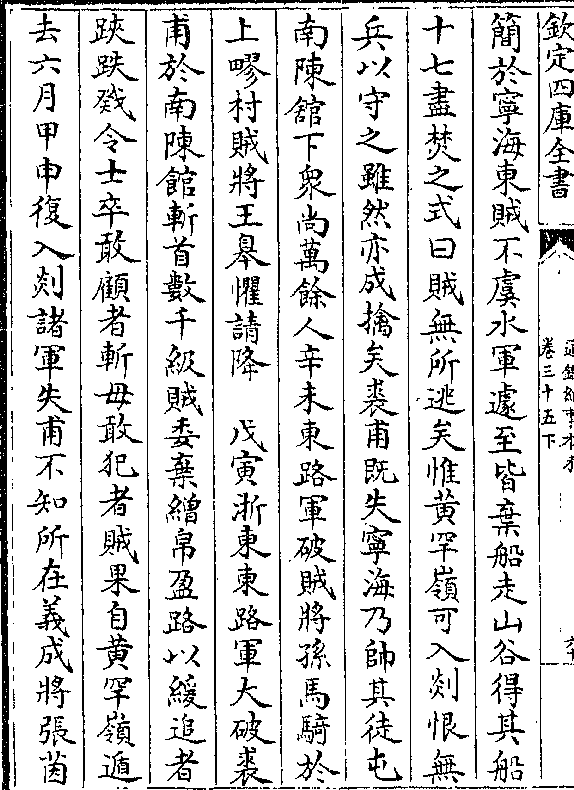 欽定四庫全書
通鑑紀事本末
卷三十五下
簡於寧海東賊不虞水軍遽至皆棄船走山谷得其船
十七盡焚之式曰賊無所逃矣惟黄罕嶺可入剡恨無
兵以守之雖然亦成擒矣裘甫既失寧海乃帥其徒屯
南陳舘下衆尚萬餘人辛未東路軍破賊將孫馬騎於
上㟉村賊將王臯懼請降　戊寅浙東東路軍大破裘
甫於南陳館斬首數千級賊委棄繒帛盈路以緩追者
跌跌戣令士卒敢顧者斬毋敢犯者賊果自黄罕嶺遁
去六月甲申復入剡諸軍失甫不知所在義成將張茵